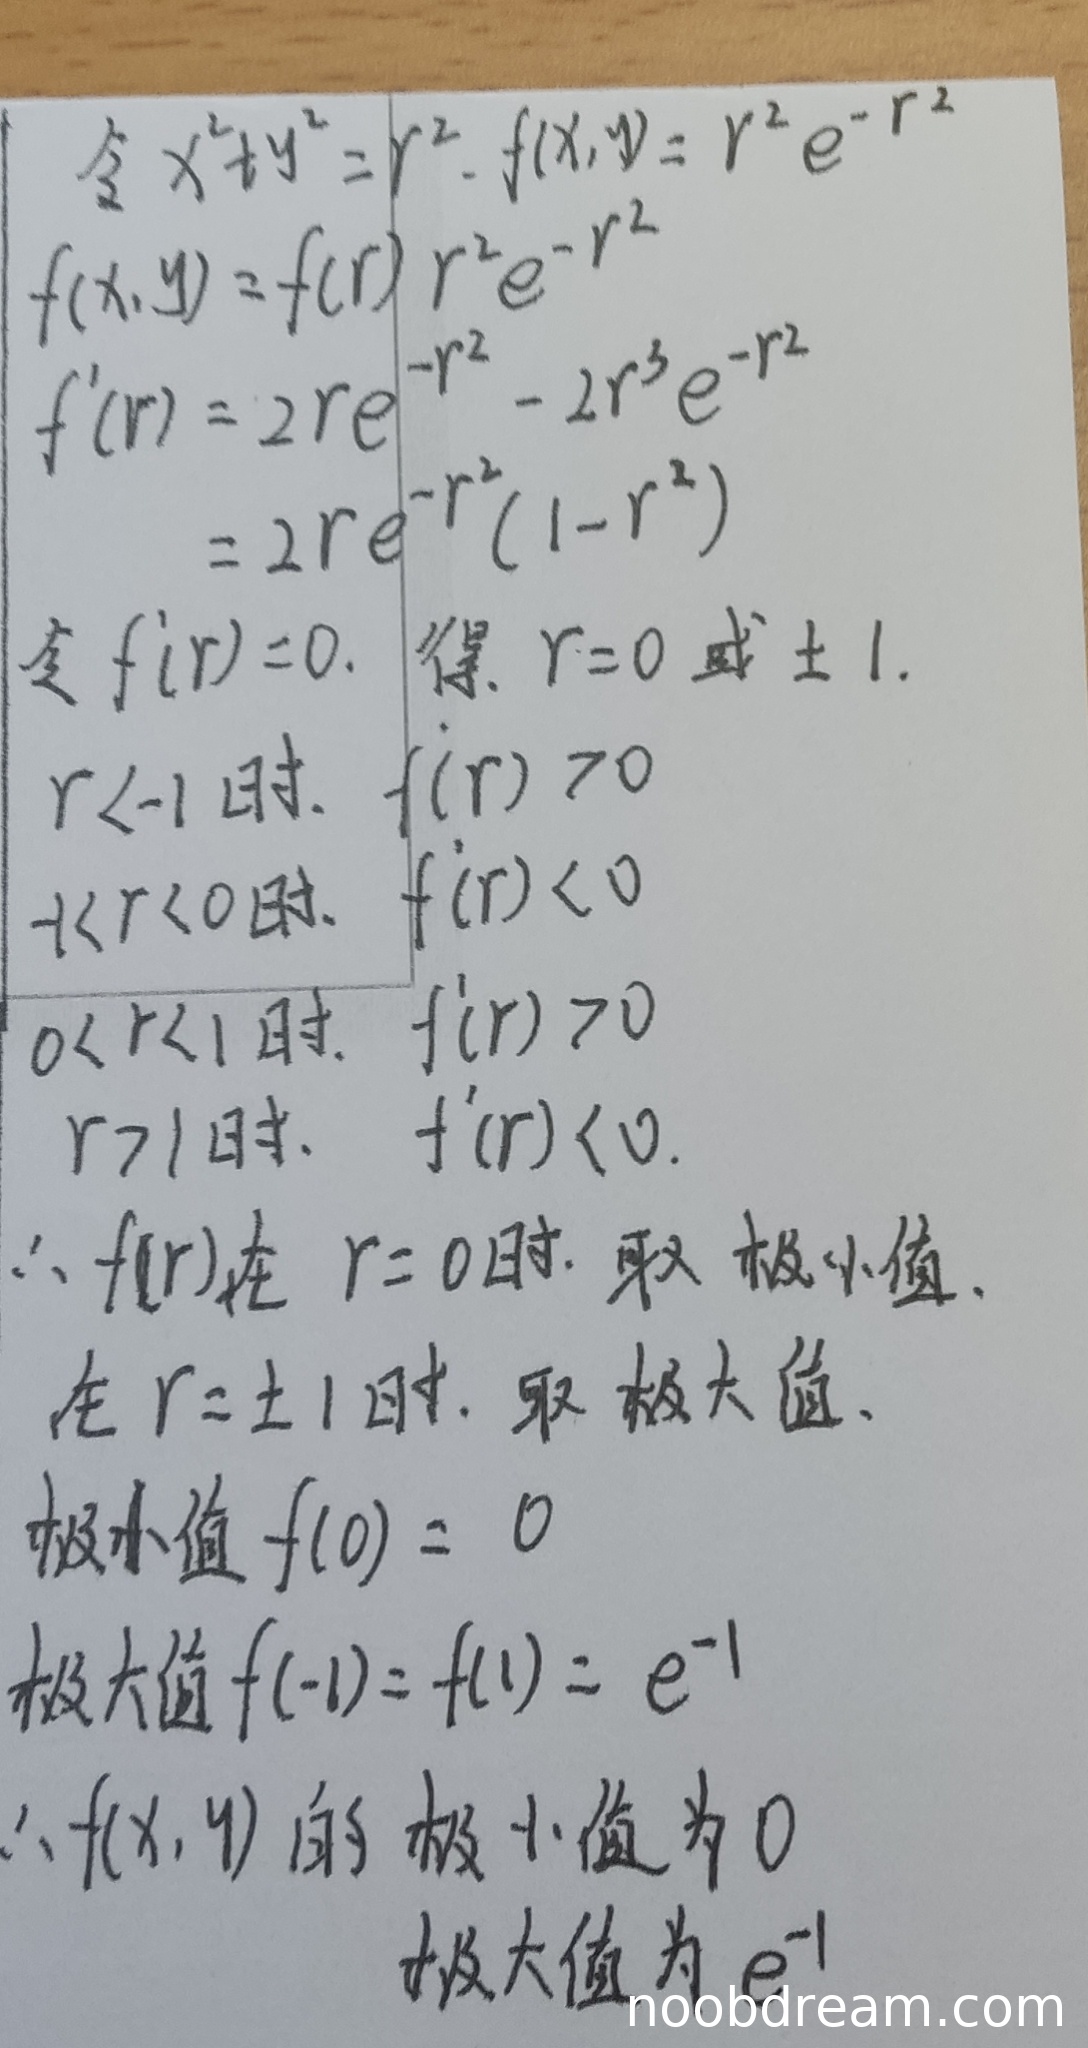 令 x²+y² = r². f(x,y) = r²e^{-r²}
f(x,y) = f(r) r²e^{-r²}
f'(r) = 2re^{-r²} - 2r³e^{-r²}
= 2re^{-r²}(1-r²)
令 f'(r)=0. 得. r=0 或 ±1.
r<-1时. f'(r)>0
-1<r<0时. f'(r)<0
0<r<1时. f'(r)>0
r>1时. f'(r)<0.
∴ f(r)在 r=0时. 取 极小值.
在 r=±1时. 取 极大值.
极小值 f(0) = 0
极大值 f(-1) = f(1) = e^{-1}
∴ f(x,y) 的 极小值为 0
极大值为 e^{-1}
noobdream.com